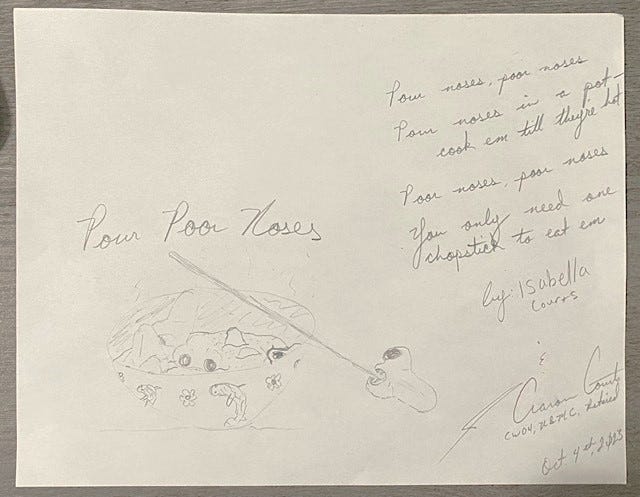 Pour Poor Noses
Pour noses, poor noses
Pour noses in a pot -
cook em till they're hot
Poor noses, poor noses
You only need one
chopstick to eat em
by: Isabella
&
Aaron
CWO4, USMC, Retired
Oct 4th, 2023